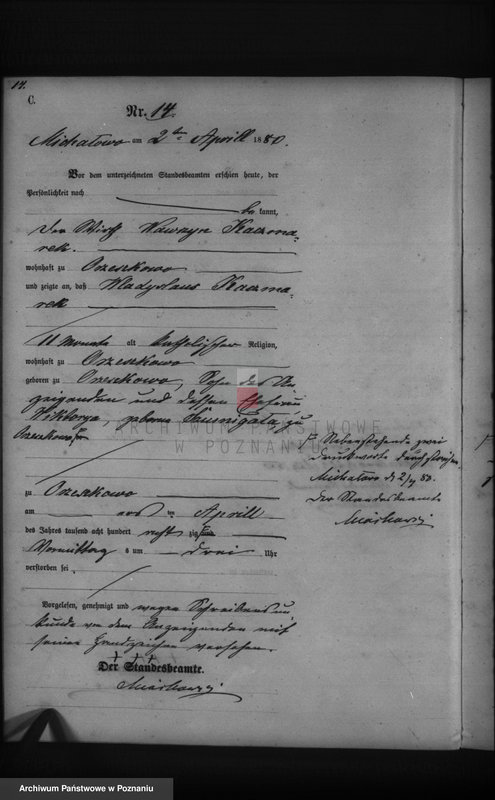 14.
C.
Nr. 14.
Michałowo am 2ten Aprill 1880.
Vor dem unterzeichneten Standesbeamten erschien heute, der
Persönlichkeit nach
be kannt,
der Wirth Wawrzyn Kaczma-
rek.
wohnhaft zu Orzeszkowo
und zeigte an, daß Wladyslaus Kaczma-
rek
11 Monate alt katholischer Religion,
wohnhaft zu Orzeszkowo
geboren zu Orzeszkowo, Sohn des An-
zeigenden und dessen Ehefrau
Wiktorya, geborne zu
Orzeszkowo
zu Orzeszkowo
am ersten Aprill
des Jahres tausend acht hundert acht zig
Vormittag s um drei Uhr
verstorben sei
Vorgelesen, genehmigt und wegen Schreibens un-
kunde von dem Anzeigenden mit
seinen Handzeichen versehen.
+ + +
Der Standesbeamte.
Nebenstehende zwei
Druckworte durchstrichen
Michałowo d 2/4 80.
Der Standesbeamte
ARCHIWUM PAŃSTWOWE
W POZNANIU
Archiwum Państwowe w Poznaniu